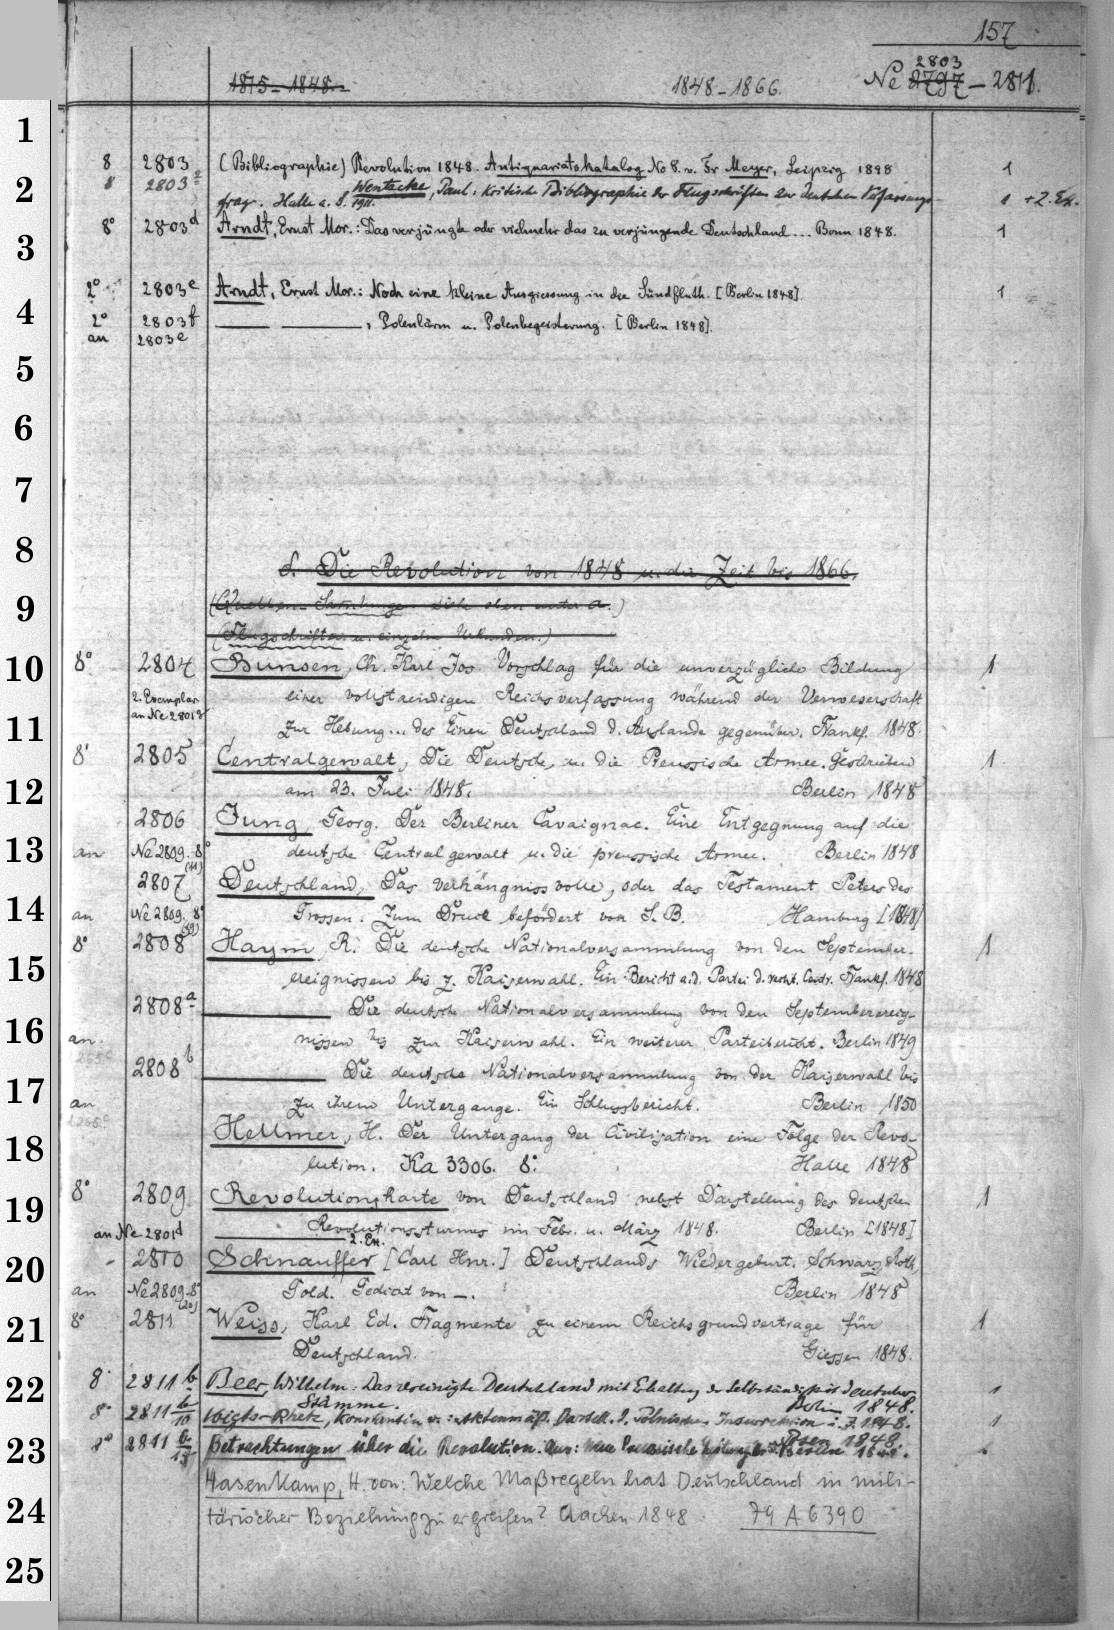 157
1815-1848.
1848-1866.
2803
Ne 2797 - 2811.
1
8 2803 (Bibliographie) Revolution 1848. Antiquariatskatalog No 8. v. Fr Meyer, Leipzig 1898 1
2
8 2803 a Wentzcke, Paul: Kritische Bibliographie der Flugschriften zur deutschen Verfassungs-
frage. Halle a. S. 1911. 1 + 2. Ex.
3
8° 2803d Arndt, Ernst Mor.: Das verjüngte oder vielmehr das zu verjüngende Deutschland... Bonn 1848. 1
2° 2803e Arndt, Ernst Mor.: Noch eine kleine Ausgiessung in die Sündfluth. [Berlin 1848] 1
4
2° 2803f — —, Polenlärm u. Polenbegeisterung. [Berlin 1848].
an 2803e
5
6
7
8
d. Die Revolution von 1848 u. die Zeit bis 1866.
9
(Quellen-Sammlungen siehe oben unter a.)
(Flugschriften u. einzelne Urkunden.)
10
8° 2804 Bunsen, Ch. Karl Jos. Vorschlag für die unverzügliche Bildung 1
2. Exemplar einer vollstaendigen Reichsverfassung während der Verweserschaft
an Ne 2801
11
zur Hebung... des Einen Deutschland d. Auslande gegenüber. Frankf. 1848.
8° 2805 Centralgewalt, Die Deutsche, u. die Preussische Armee. Geschrieben 1
12
am 23. Juli 1848. Berlin 1848
2806 Jung, Georg. Der Berliner Cavaignac. Eine Entgegnung auf die
13
an Ne 2809. 8° (11) deutsche Centralgewalt u. die preussische Armee. Berlin 1848
2807 Deutschland, Das verhängnissvolle, oder das Testament Peters des
14
an Ne 2809. 8° Grossen. Zum Druck befördert von S. B. Hamburg [1848]
8° 2808 Haym, R. Die deutsche Nationalversammlung von den September- 1
15
ereignissen bis z. Kaiserwahl. Ein Bericht a.d. Partei d. recht. Centr. Frankf. 1848
2808a — Die deutsche Nationalversammlung von den Septemberereig-
16
an nissen bis zur Kaiserwahl. Ein weiterer Parteibericht. Berlin 1849
2808b — Die deutsche Nationalversammlung von der Kaiserwahl bis
17
an zu ihrem Untergange. Ein Schlussbericht. Berlin 1850
Hellmer, H. Der Untergang der Civilisation eine Folge der Revo-
18
lution. Ka 3306. 8° Halle 1848
8° 2809 Revolutionskarte von Deutschland nebst Darstellung des deutschen 1
19
Revolutionssturmes im Febr. u. März 1848. Berlin [1848]
an Ne 2801d — 2. Ex.
20
2810 Schnauffer [Carl Hnr.] Deutschlands Wiedergeburt. Schwarz, Roth,
an Ne 2809. 8° (20) Gold. Gedicht von —. Berlin 1848
21
8° 2811 Weiss, Karl Ed. Fragmente zu einem Reichsgrundvertrage für 1
Deutschland. Giessen 1848.
22
8° 2811 b Beer, Wilhelm: Das vereinigte Deutschland mit Erhaltung der Selbständigkeit deutscher 1
Stämme. Berlin 1848.
8° 2811 b/10 Voigts-Rhetz, Konstantin v.: Aktenmäß. Darstell. d. Polnischen Insurrektion i. J. 1848. 1
Posen 1848.
23
2° 2811 b/15 Betrachtungen über die Revolution. Aus: Neue Preussische Zeitung. Berlin 1848.
Hasenkamp, H. von: Welche Maßregeln hat Deutschland in mili-
24
tärischer Beziehung zu ergreifen? Aachen 1848 79 A 6390
25